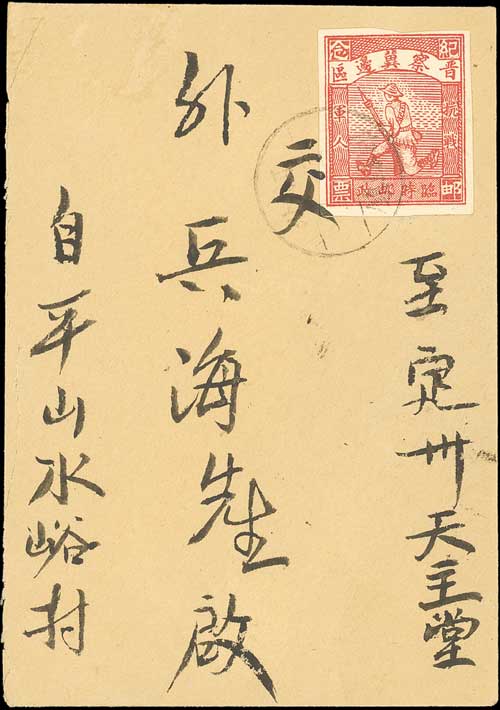 紀念
晉察冀邊區
抗戰軍人
臨時郵政
郵票
至定卅天主堂
外交
兵海先生啟
自平山水峪村